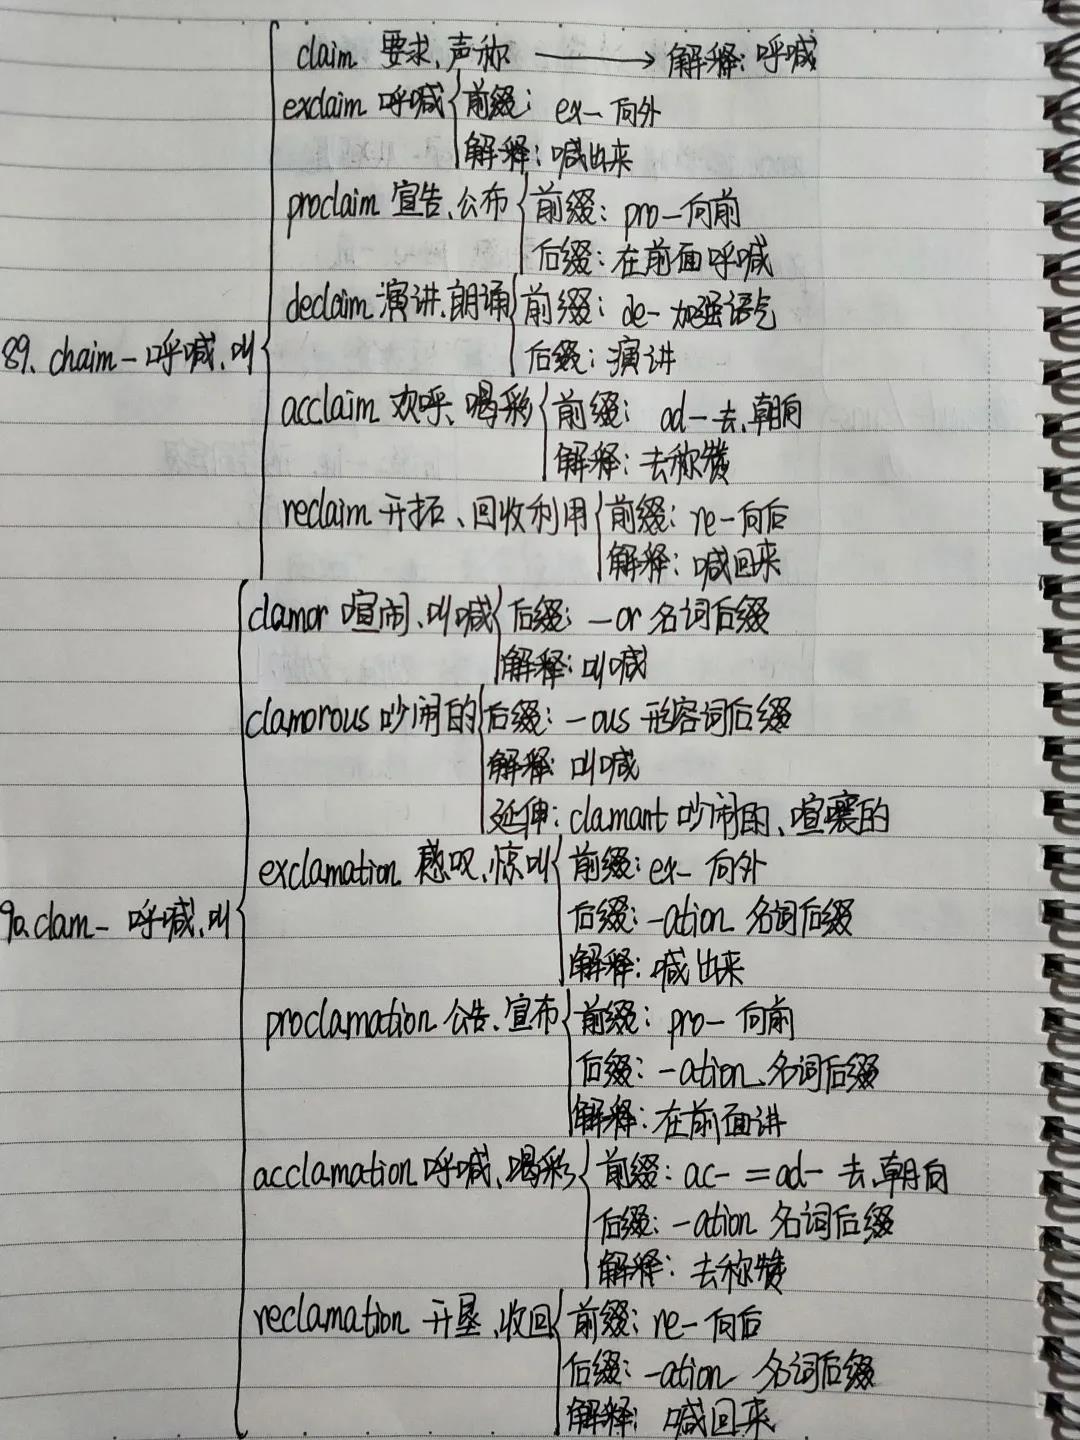 claim 要求、声称 → 解释: 呼喊
exclaim 呼喊 前缀: ex- 向外
解释: 喊出来
proclaim 宣告、公布 前缀: pro-向前
后缀: 在前面呼喊
declaim 演讲、朗诵 前缀: de- 加强语气
89. chaim- 呼喊、叫
后缀: 演讲
acclaim 欢呼、喝彩 前缀: ad-去、朝向
解释: 去称赞
reclaim 开拓、回收利用 前缀: re-向后
解释: 喊回来
clamor 喧闹、叫喊 后缀: -or 名词后缀
解释: 叫喊
clamorous 吵闹的 后缀: -ous 形容词后缀
解释: 叫喊
延伸: clamant 吵闹的、喧嚷的
exclamation 感叹、惊叫 前缀: ex- 向外
90. clam- 呼喊、叫
后缀: -ation 名词后缀
解释: 喊出来
proclamation 公告、宣布 前缀: pro- 向前
后缀: -ation 名词后缀
解释: 在前面讲
acclamation 呼喊、喝彩 前缀: ac- = ad- 去、朝向
后缀: -ation 名词后缀
解释: 去称赞
reclamation 开垦、收回 前缀: re-向后
后缀: -ation 名词后缀
解释: 喊回来